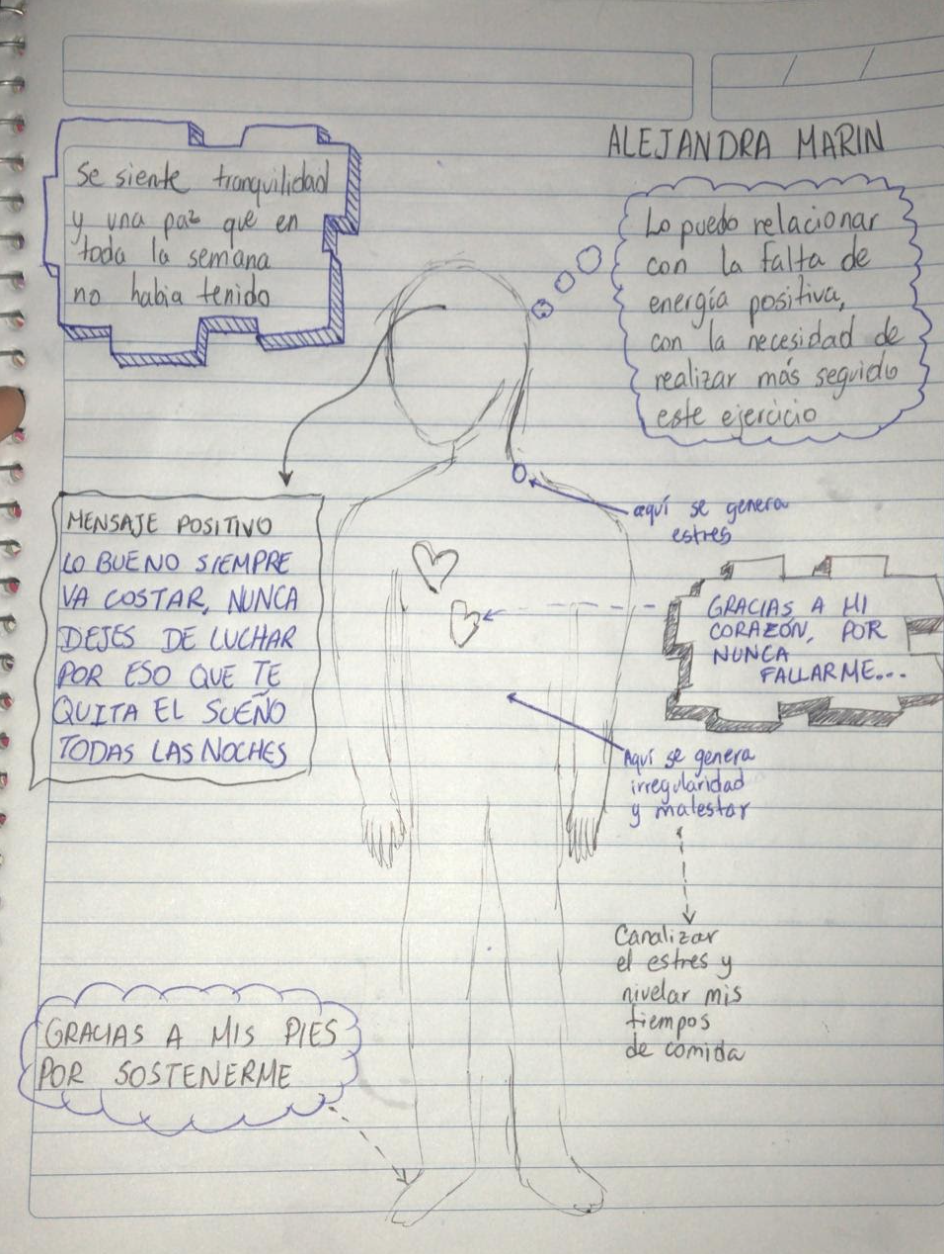 ALEJANDRA MARIN
Se siente tranquilidad
y una paz que en
toda la semana
no habia tenido
Lo puedo relacionar
con la falta de
energía positiva,
con la necesidad de
realizar más seguido
este ejercicio
aquí se genera
estres
MENSAJE POSITIVO
LO BUENO SIEMPRE
VA COSTAR, NUNCA
DEJES DE LUCHAR
POR ESO QUE TE
QUITA EL SUEÑO
TODAS LAS NOCHES
GRACIAS A MI
CORAZÓN, POR
NUNCA
FALLARME...
Aquí se genera
irregularidad
y malestar
Canalizar
el estres y
nivelar mis
tiempos
de comida
GRACIAS A MIS PIES
POR SOSTENERME